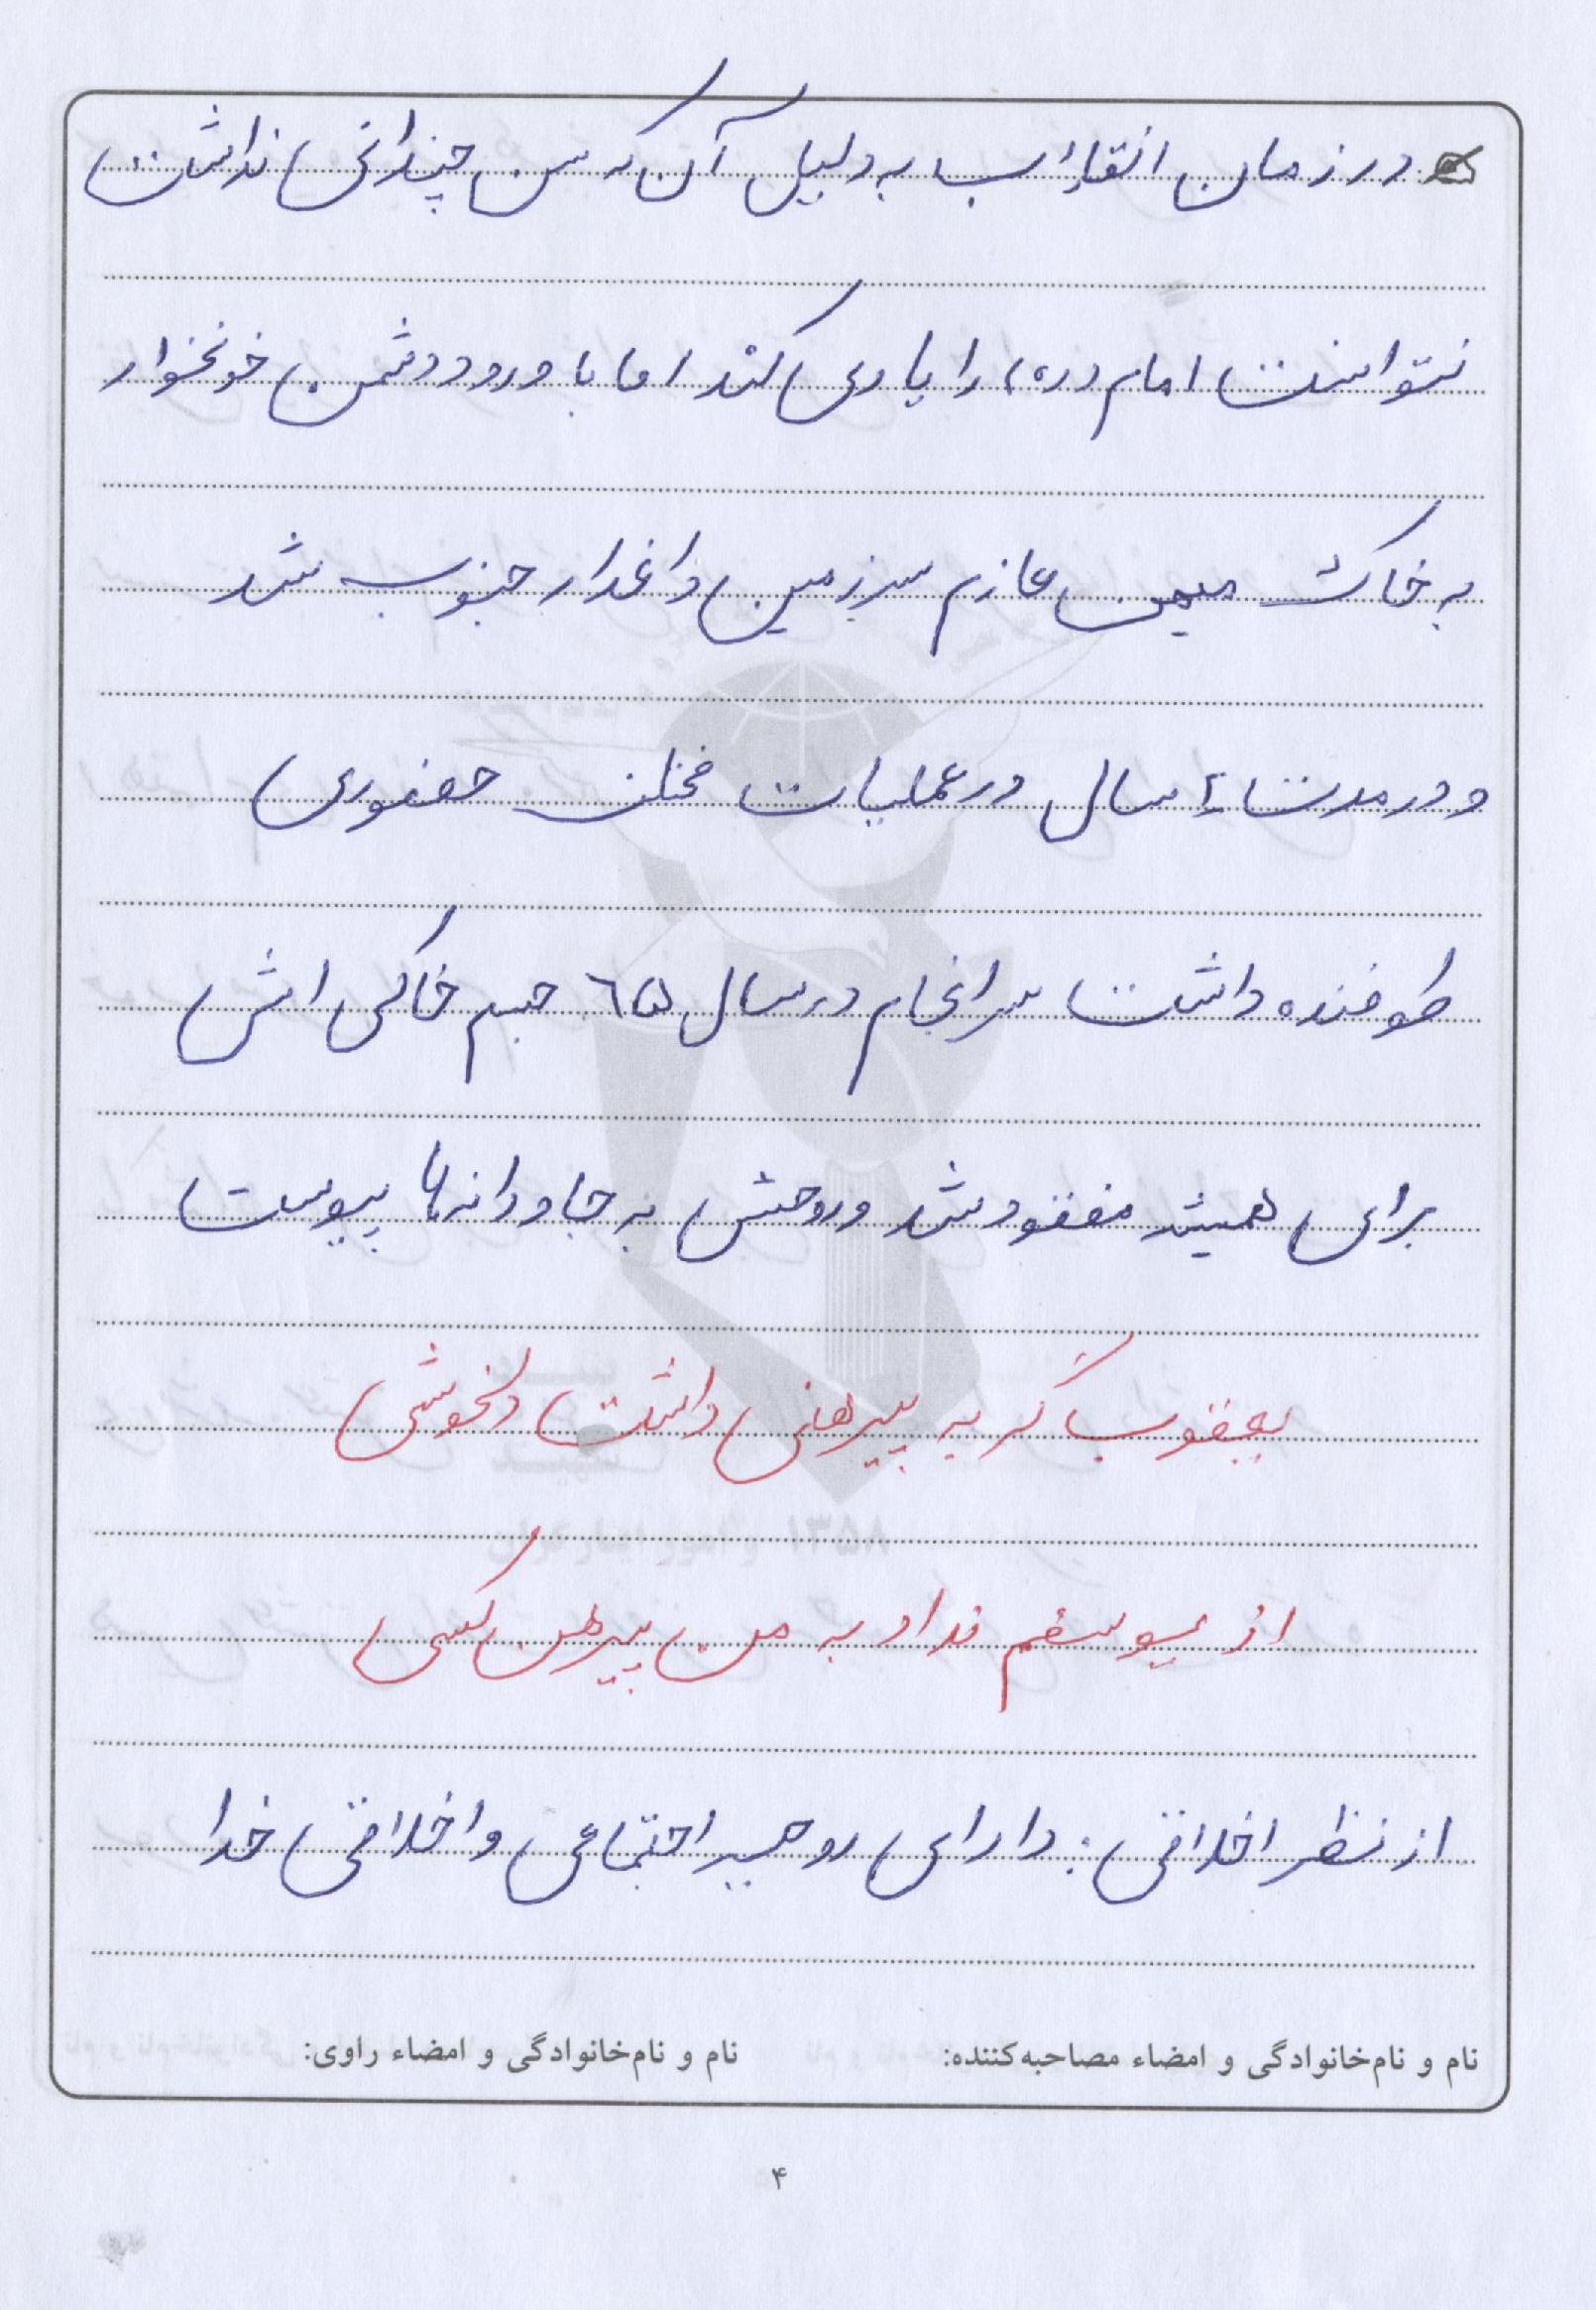 در زمان انقلاب به دلیل آن که سن چندانی نداشت
نتوانست امام (ره) را یاری کند اما با ورود دشمن خونخوار
به خاک میهن عازم سرزمین داغدار جنوب شد
و در مدت ٤ سال در عملیات مختلف حضوری
طوفنده داشت سرانجام در سال ٦٥ جسم خاکی اش
برای همیشه مفقود شد و روحش به جاودانه‌ها پیوست
یعقوب گر به پیرهنی داشت دلخوشی
از یوسفم نداد به من پیرهن کسی
از نظر اخلاقی : دارای روحیه اجتماعی و اخلاقی خدا
نام و نام‌خانوادگی و امضاء مصاحبه‌کننده: نام و نام‌خانوادگی و امضاء راوی:
۴